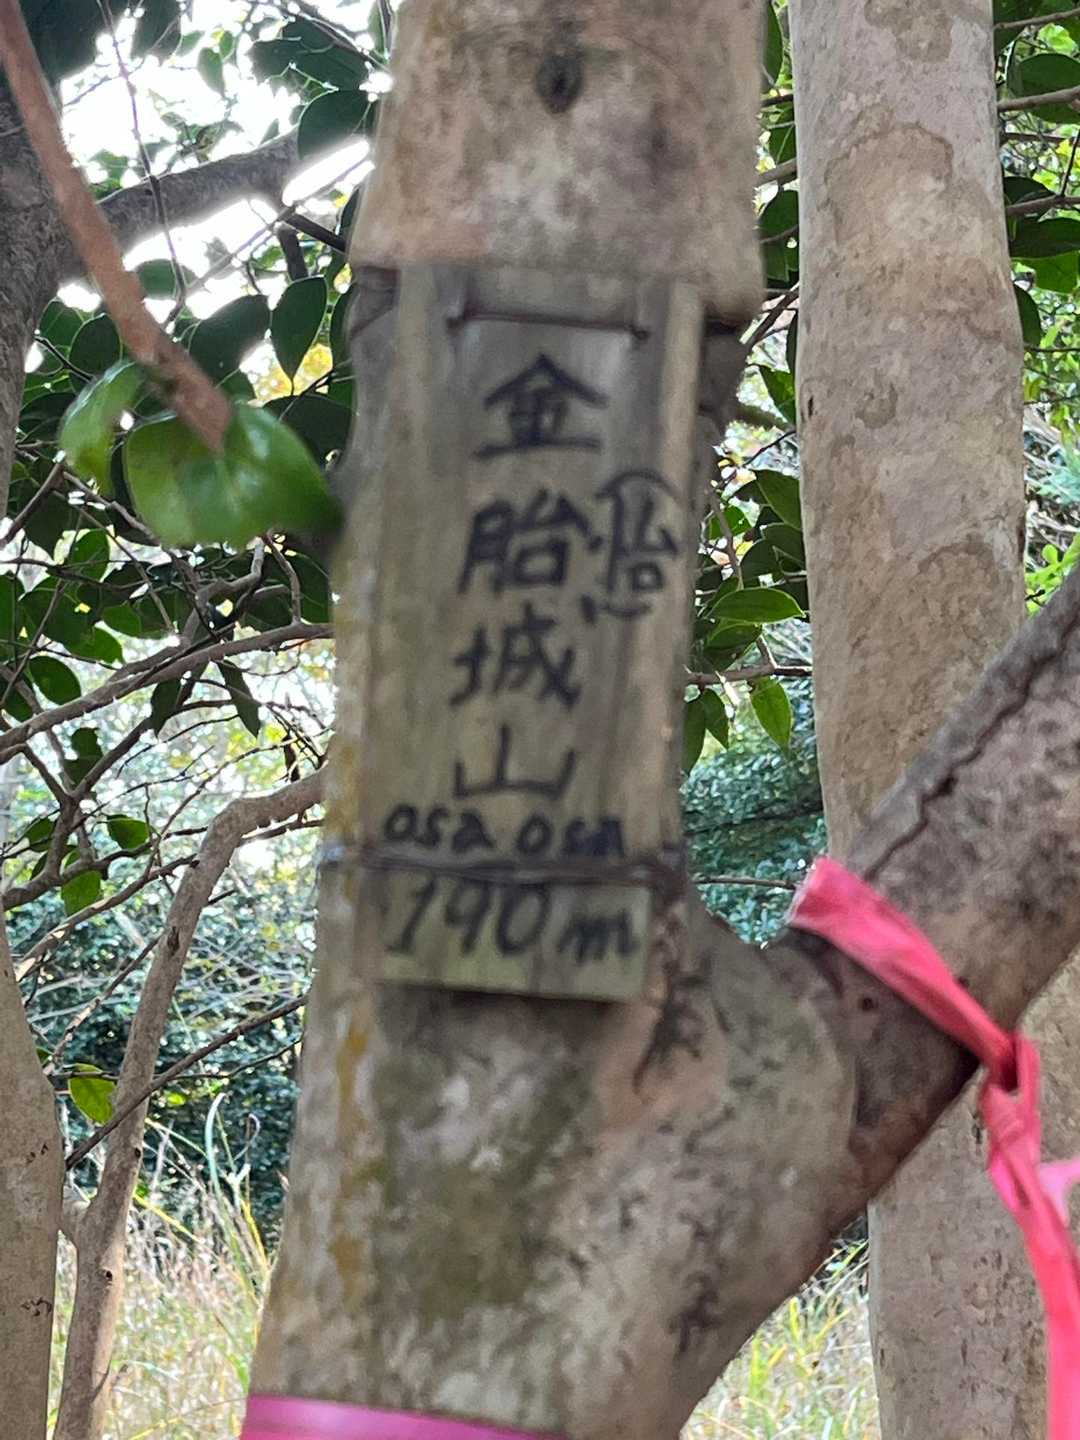 金胎城山
(怡)
osa osa
190m